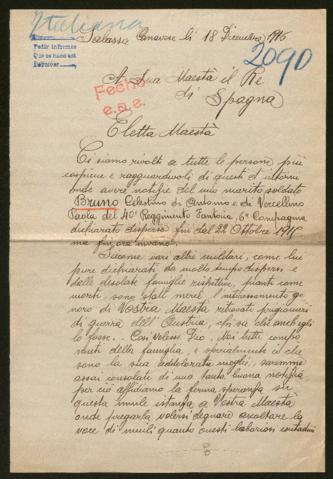 Italiana
Pedir informes
Que se haga est
Devolver
Canavese li 18 Dicembre 1916
2090
A Sua Maestà il Re
di Spagna
Fecho
Eletta Maestà
Ci siamo rivolti a tutte le persone più
cospicue e ragguardevoli di questi dintorni
onde avere notizie del mio marito soldato
Bruno Celestino di Antonio e di Vercellino
Paola del 40° Reggimento Fanteria, 6ª Compagnia
dichiarato disperso fin dal 22 Ottobre 1915
ma finora invano.
Siccome vari altri militari, come lui
pure dichiarati da molto tempo dispersi e
dalle desolate famiglie rispettive, pianti come
morti, sono stati mercè l'interessamento ge
neroso di Vostra Maestà ritrovati prigionieri
di guerra dell'Austria, chi sa che anch'egli
lo fosse. Così volesse Dio. Noi tutti compo
nenti della famiglia, e specialmente io che
sono la sua addolorata moglie, saremmo
assai consolati di una tanto buona notizia
perciò affidiamo la ferma speranza su
questa umile istanza a Vostra Maestà
onde pregarla volersi degnare ascoltare la
voce di umili quanto onesti laboriosi contadini